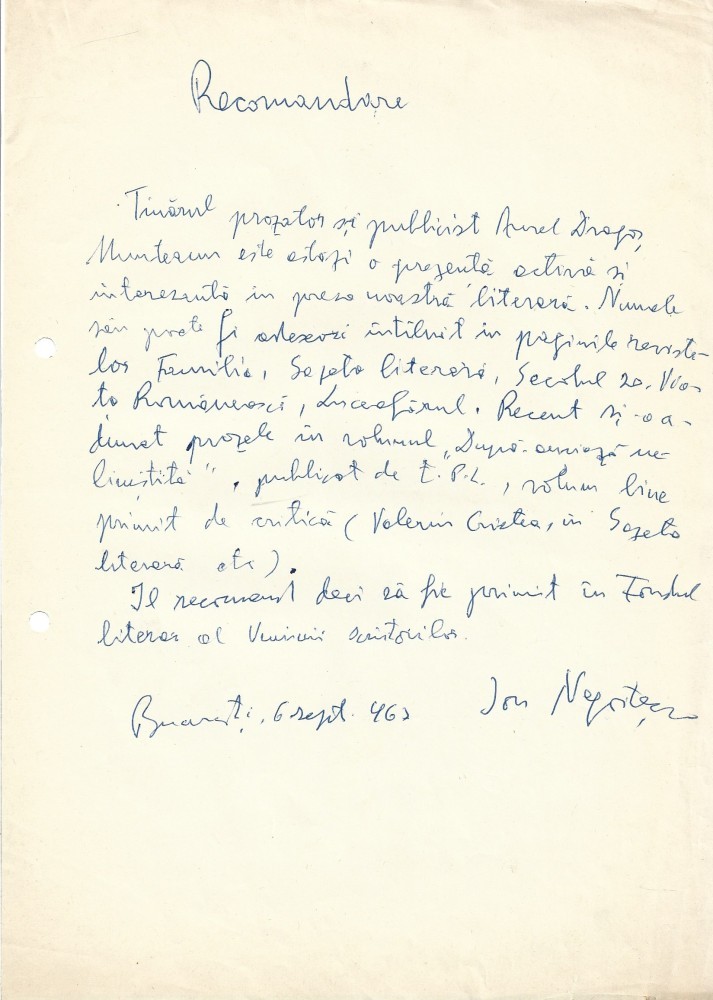 Recomandare
Tînărul prozator și publicist Aurel Dragoș
Munteanu este astăzi o prezență activă și
interesantă în presa noastră literară. Numele
său poate fi adeseori întîlnit în paginile reviste-
lor Familia, Gazeta literară, Secolul 20, Via-
ța Românească, Luceafărul. Recent și-a a-
dunat prozele în volumul „După-amiază ne-
liniștită”, publicat de E.P.L., volum bine
primit de critică (Valeriu Cristea, în Gazeta
literară etc).
Îl recomand deci să fie primit în Fondul
literar al Uniunii Scriitorilor.
București, 6 sept. Ion Negoițescu